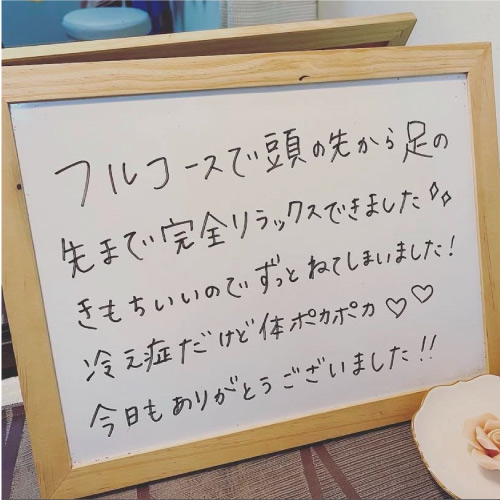 フルコースで頭の先から足の
先まで完全リラックスできました✧✧
きもちいいのでずっとねてしまいました!
冷え症だけど体ポカポカ♡♡
今日もありがとうございました!!